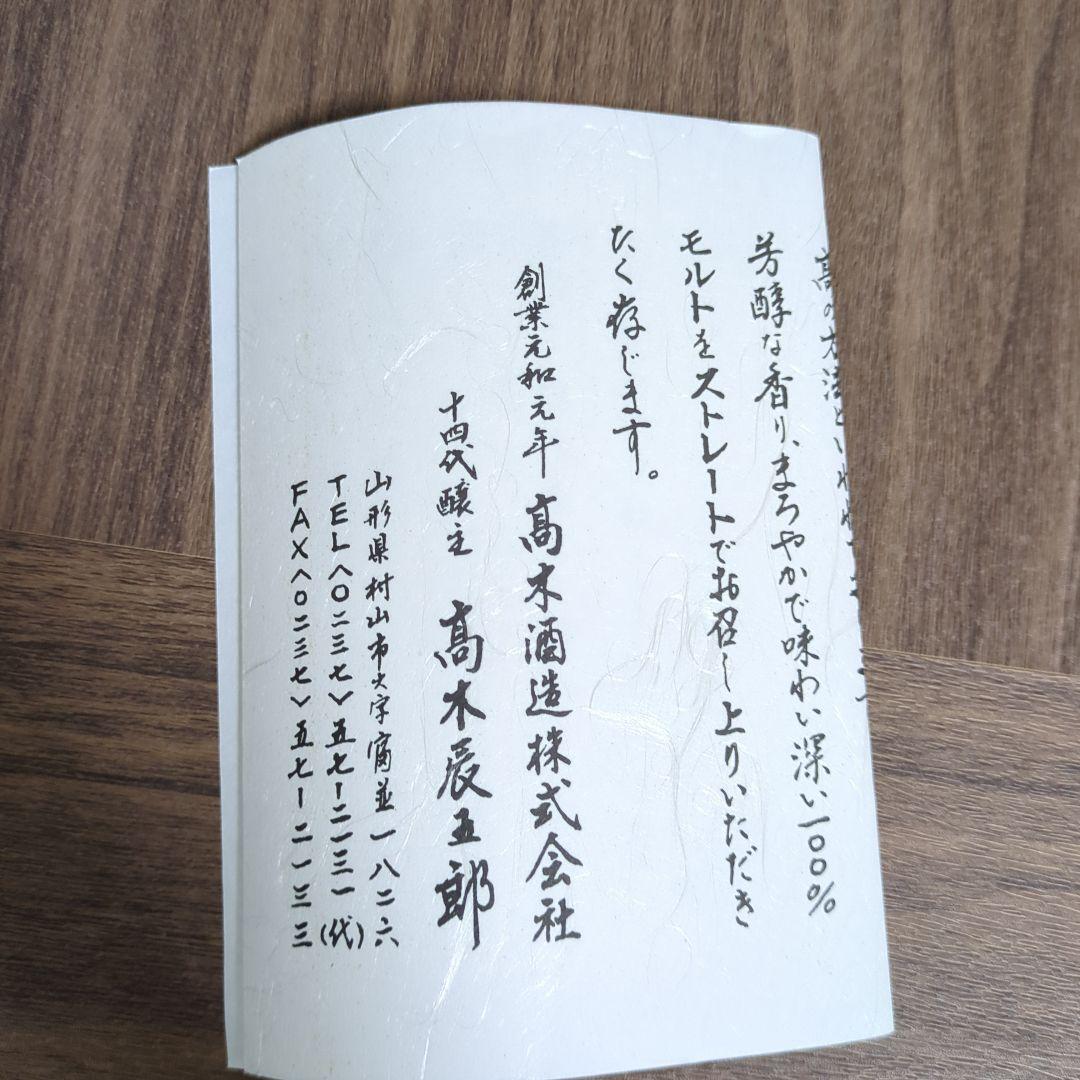 高の方法といわれ
芳醇な香り、まろやかで味わい深い一〇〇%
モルトをストレートでお召し上りいただき
たく存じます。
創業元和元年 髙木酒造株式会社
十四代醸主 髙木辰五郎
山形県村山市大字富並一八二六
TEL〈〇二三七〉五七ー二一三一(代)
FAX〈〇二三七〉五七ー二一三三